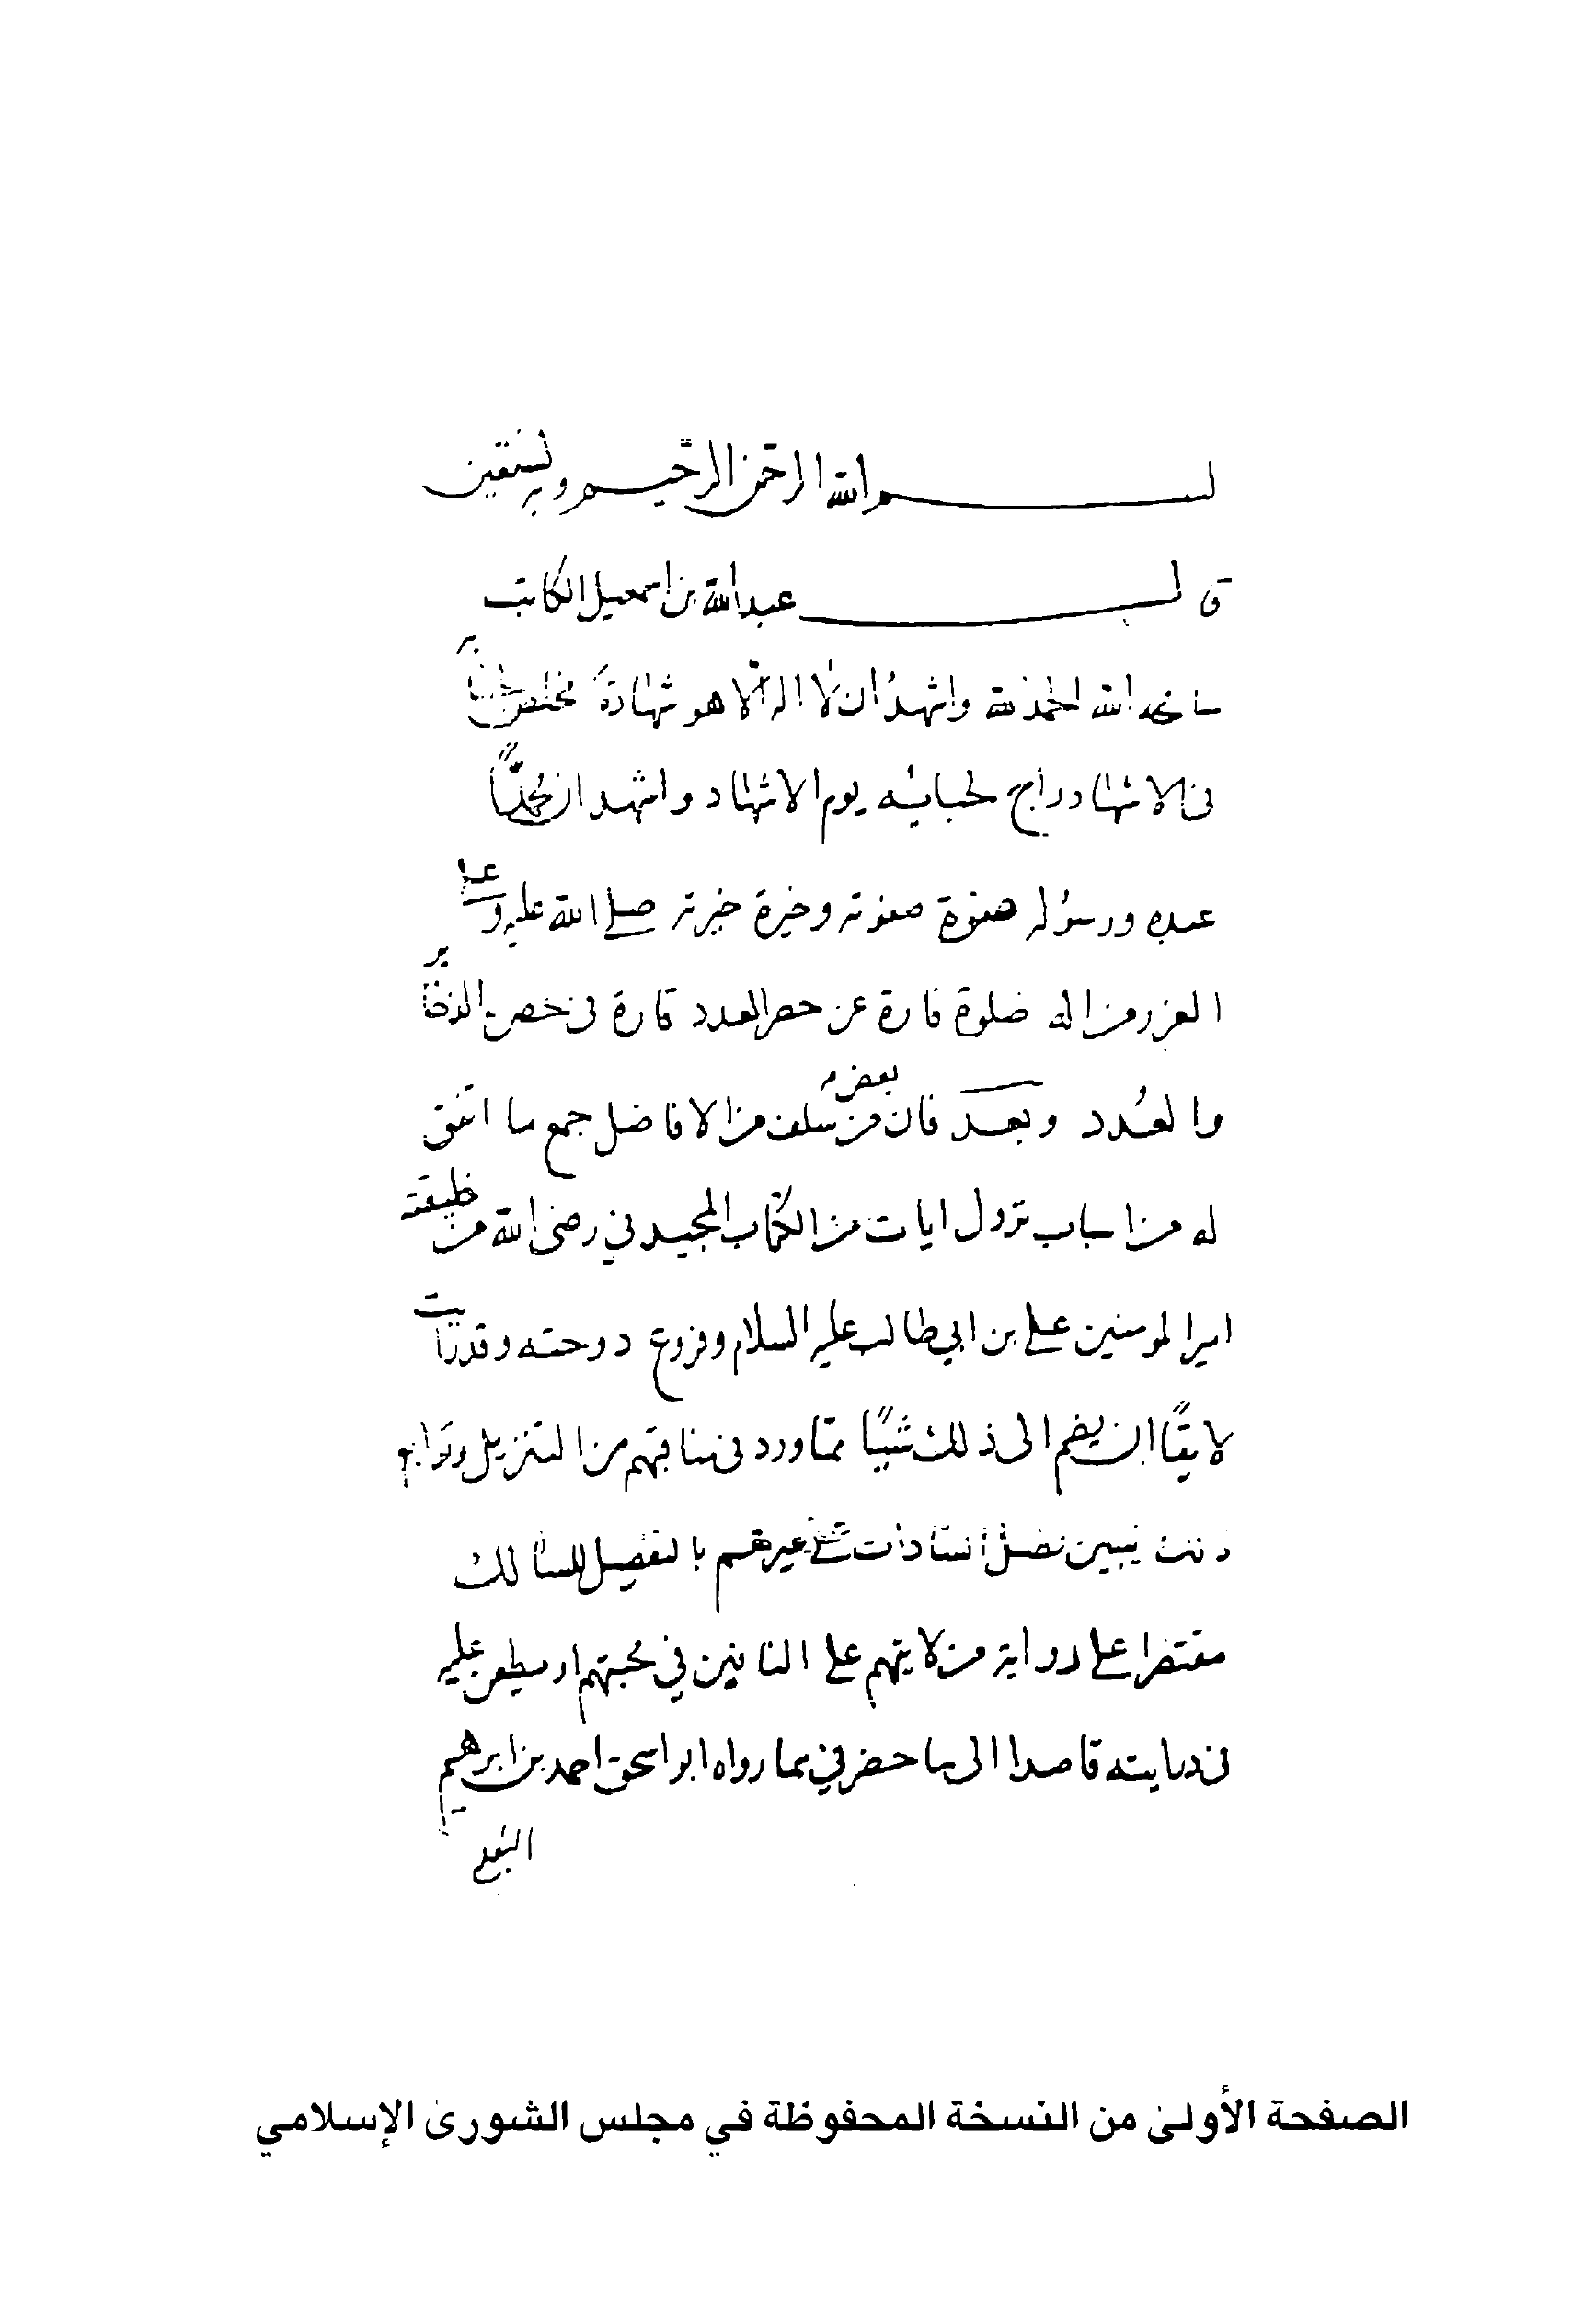 بسم الله الرحمن الرحيم وبه نستعين
قال عبدالله بن اسمعيل الكاتب
الله الحمد لله واشهد ان لا اله الا هو شهادة مخلص
فى الاشهاد راج لحبائه يوم الاشهاد واشهد ان محمدًا
عبده ورسوله صفوة صفوته وخيرة خيرته صلى الله عليه وعلى
الغرر من اله صلوة فارة عن حصر العدد قارة فى
والعُدد وبعد فان بعض من سلف من الافاضل جمع ما اتفق
له من اسباب نزول ايات من الكتاب المجيد فى رضى الله من خليقته
امير المومنين على بن ابي طالب عليه السلام وفروع دوحته وقد رايت
لايقًا ان يضم الى ذلك شيئًا مما ورد فى مناقبهم من التنزيل وتوابع
يبين فضل السادات على غيرهم بالتفصيل للسالك
مقتصرا على رواية من لا يتهم على النائين فى محبتهم او يطعن عليه
فى دمايته قاصدا الى ما حضرنى مما رواه ابو اسحق احمد بن ابرهيم
الثعلبى
الصفحة الأولىٰ من النسخة المحفوظة في مجلس الشورىٰ الإسلامي